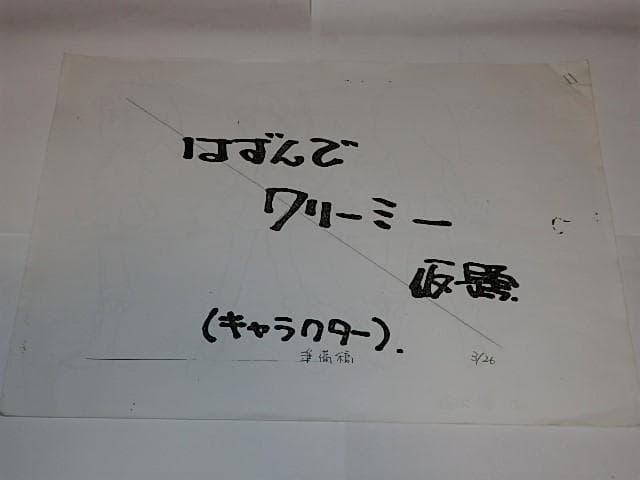 11
はずんで
クリーミー
仮題.
(キャラクター).
準備稿 3/26